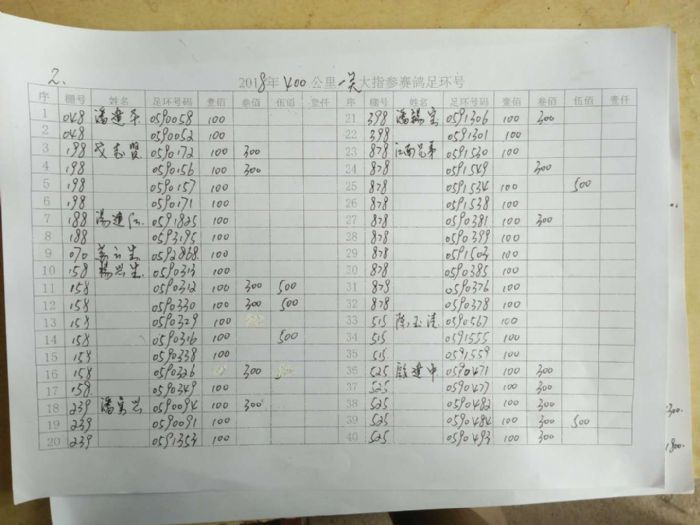 2.
2018年 400公里 一关大指参赛鸽足环号
序 棚号 姓名 足环号码 壹佰 叁佰 伍佰 壹仟 序 棚号 姓名 足环号码 壹佰 叁佰 伍佰 壹仟
1 048 潘建平 0590058 100 21 398 潘锡宝 0591306 100 300
2 048 0590052 100 22 398 0591301 100
3 198 0590172 100 300 23 878 江南兄弟 0591530 100
4 198 0590156 100 300 24 878 0591549 300
5 198 0590157 100 25 878 0591534 100 500
6 198 0590171 100 26 878 0591538 100
7 188 汤建 0591825 100 27 878 0590381 100 300
8 188 0593195 100 28 878 0590399 100
9 070 0592868 100 29 878 0591503 100
10 158 杨兴生 0590313 100 30 878 0590385 100
11 158 0590312 100 300 500 31 878 0590376 100
12 158 0590330 100 300 500 32 878 0590378 100
13 158 0590329 100 33 515 陈玉清 0590567 100
14 158 0590316 100 500 34 515 0591555 100
15 158 0590338 100 35 515 0591559 100
16 158 0590326 300 36 525 殷建中 0590471 100 300
17 158 0590349 100 37 525 0590477 100 300
18 239 潘宝兴 0590094 100 300 38 525 0590482 100 300
19 239 0590091 100 39 525 0590484 100 300 500
20 239 0591353 100 40 525 0590493 100 300
300.
1800.